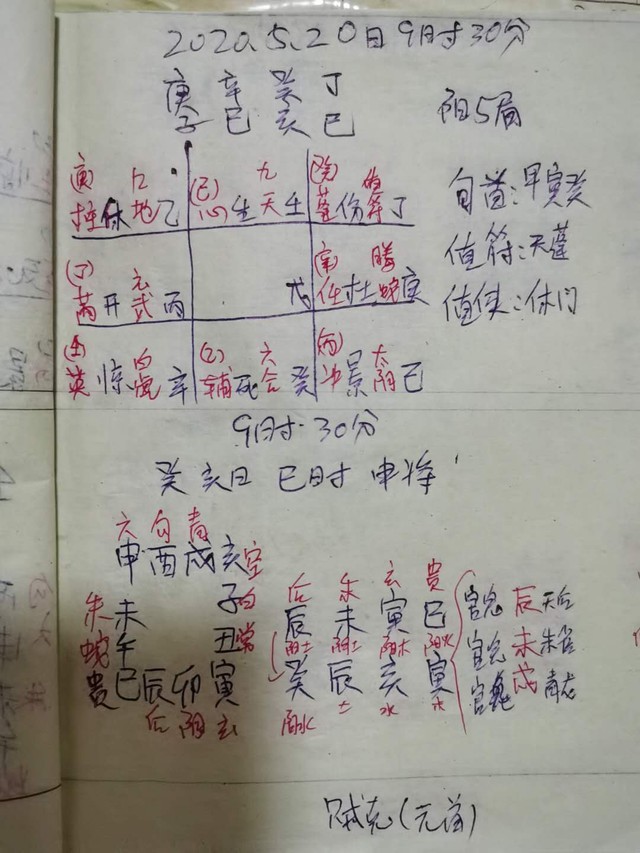 2020.5.20日9时30分
庚 辛 癸 丁
子 巳 亥 巳
阳5局
旬首:甲寅癸
值符:天蓬
值使:休门
(庚) 九
柱休地乙
(己) 九
心生天壬
(癸) 值
蓬伤符丁
(丁) 玄
芮开武丙
戊
(辛) 腾
任杜蛇庚
(壬) 白
英惊虎辛
(乙) 六
辅死合癸
(丙) 太
冲景阴己
9时30分
癸亥日 巳时 申将
六 勾 青
申 酉 戌 亥空
朱未 子白
蛇午 丑常
贵巳辰卯寅
后 阴 玄
后 朱 玄 贵
辰 未 寅 巳
阴土 阴土 阳木 阴火
癸 辰 亥 寅
阴水 土 水 木
官鬼 辰 天后
官鬼 未 朱雀
官鬼 戌 青龙
贼克(元首)